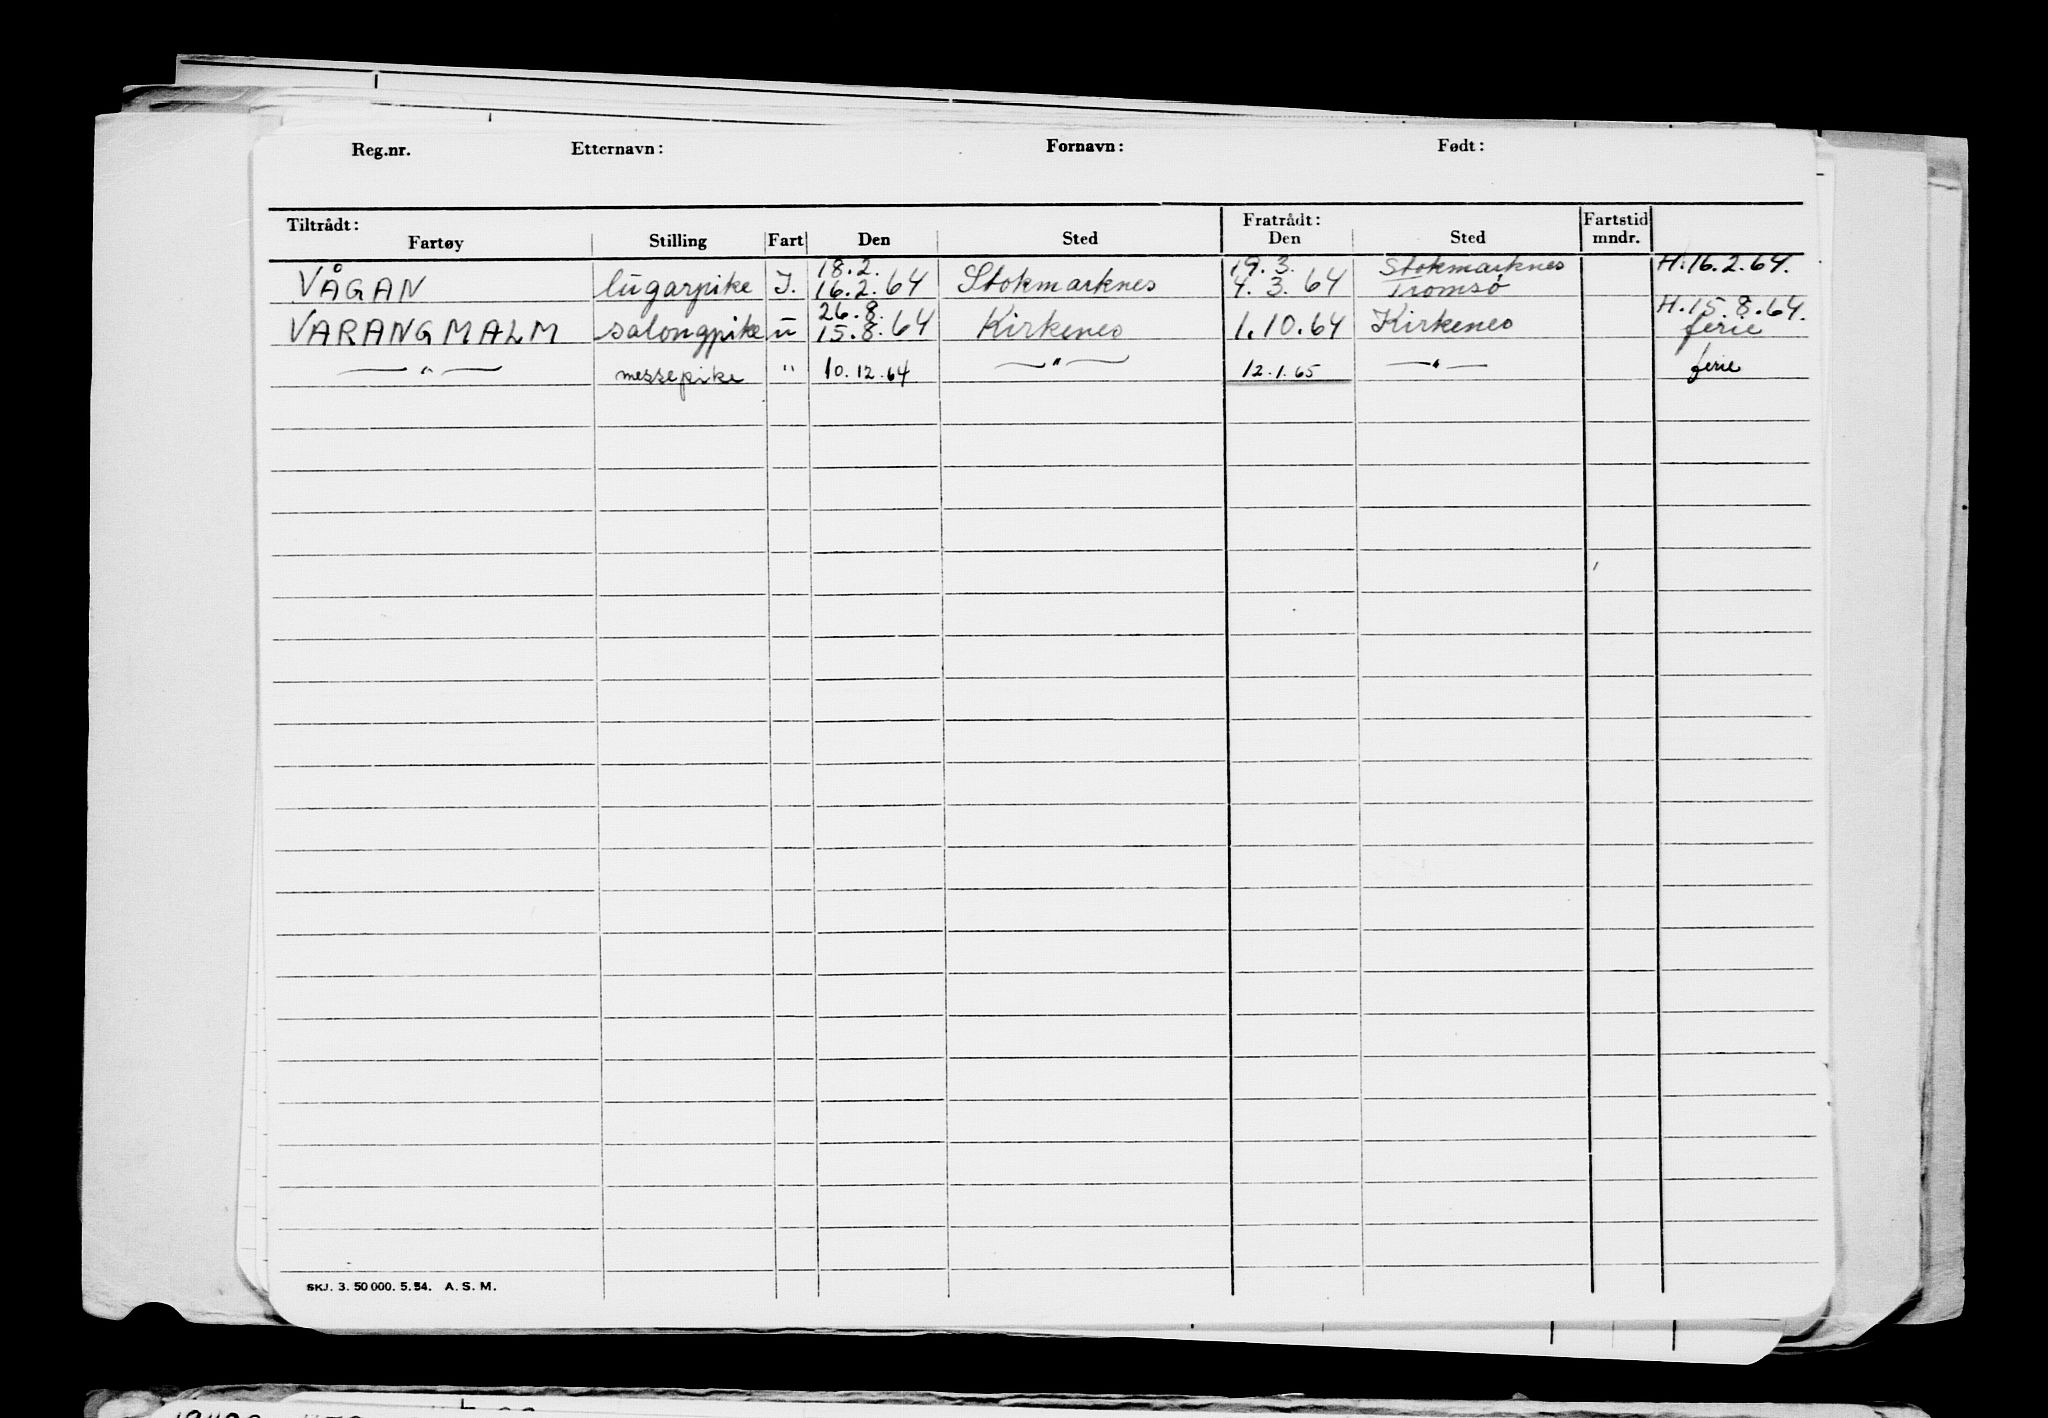 Reg.nr. Etternavn: Fornavn: Født:
Tiltrådt: Fratrådt: Fartstid
Fartøy Stilling Fart Den Sted Den Sted mndr.
18.2. 19.3. Stokmarknes H.16.2.64.
VÅGAN lugarpike I. 16.2.64 Stokmarknes 4.3.64 Tromsø
26.8. H.15.8.64.
VARANGMALM salongpike u 15.8.64 Kirkenes 1.10.64 Kirkenes ferie
— " — messepike " 10.12.64 — " — 12.1.65 — " — ferie
SKJ. 3. 50 000. 5. 54. A. S. M.